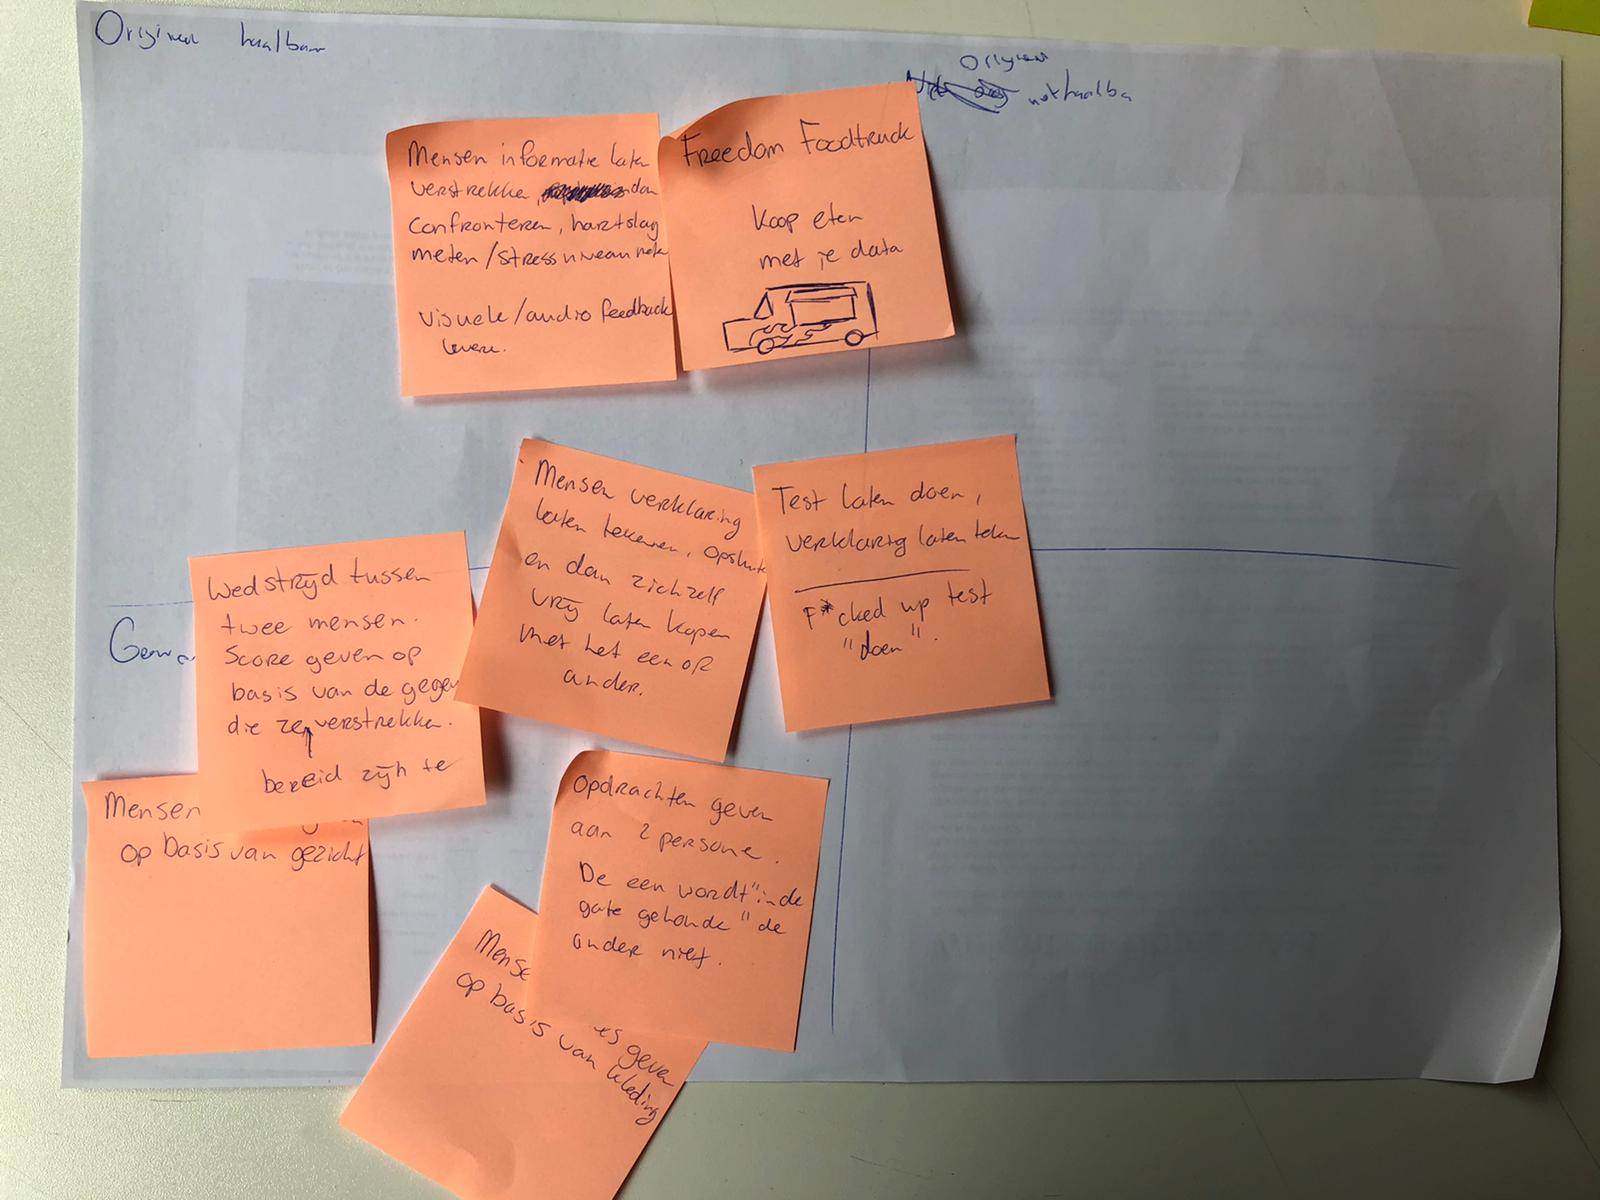 Origineel haalbaar
Origineel
niet haalba
Mensen informatie laten
verstrekke, dan
confronteren, hartslag
meten / stressniveau mete
visuele / audio feedback
levere.
Freedom Foodtruck
Koop eten
met je data
Mensen verklaring
laten tekenen, opsluite
en dan zichzelf
vrij laten kopen
met het een of
ander.
Test laten doen,
verklaring laten teken
F*cked up test
"doen".
Wedstrijd tussen
twee mensen.
Score geven op
basis van de gegev
die ze verstrekken.
bereid zijn te
Gewo
Mensen
op basis van gezicht
Opdrachten geven
aan 2 persone.
De een wordt "in de
gate gehoude" de
ander niet.
Mense
es geven
op basis van kleding